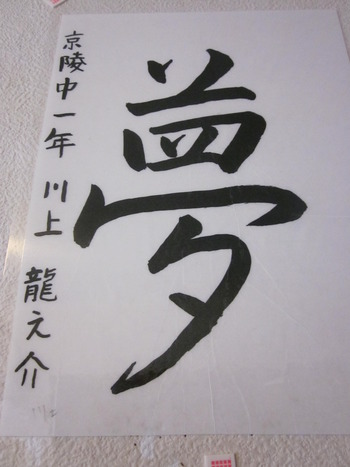 夢
京陵中一年 川上 龍之介